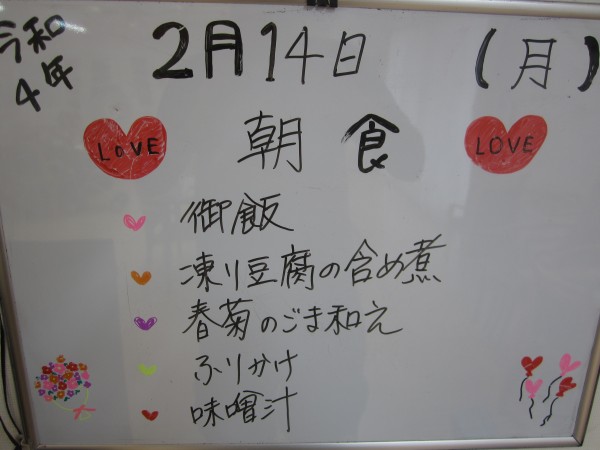 令和
4年
2月14日 (月)
LOVE 朝食 LOVE
御飯
凍り豆腐の含め煮
春菊のごま和え
ふりかけ
味噌汁